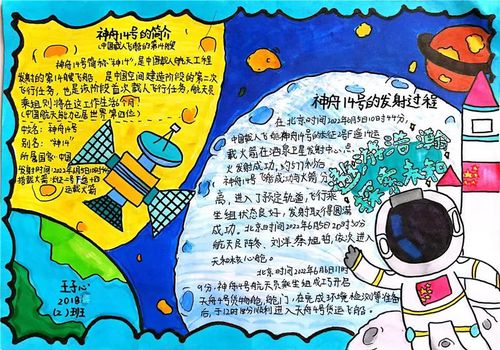 神舟14号的简介
(中国载人飞船的第14艘
神舟14号简称"神14",是中国载人航天工程
发射的第14艘飞船,是中国空间建造阶段的第二次
飞行任务,也是该阶段首次载人飞行任务,航天员
乘组则将在这工作生活6个月?
(中国航天能力已居世界第四位)
中文名:神舟14号
别名:"神14"
所属国家:中国
发射时间:2022年6月5日10时44分
搭载火箭:长征二号F遥十四
运载火箭
神舟14号的发射过程
在北京时间2022年6月5日10时44分,
中国载人飞船神舟14号的长征2号F遥14运
载火箭在酒泉卫星发射中心点
火发射成功,约577秒后
神舟14号飞船成功与火箭分
高,进入了预定轨道,飞行乘
坐组状态良好,发射取得圆满
成功。北京时间2022年6月5日20时50分
航天员陈冬、刘洋、蔡旭哲,依次进入
天和核心舱。
北京时间2022年6月6日11时
9分,神舟14号航天员乘组成功开启
天舟4号货物舱,舱门,在完成环境检测等准备
后,于12时19分顺利进入天舟4号货运飞船。
浩瀚
探索未知
2018
(2)班